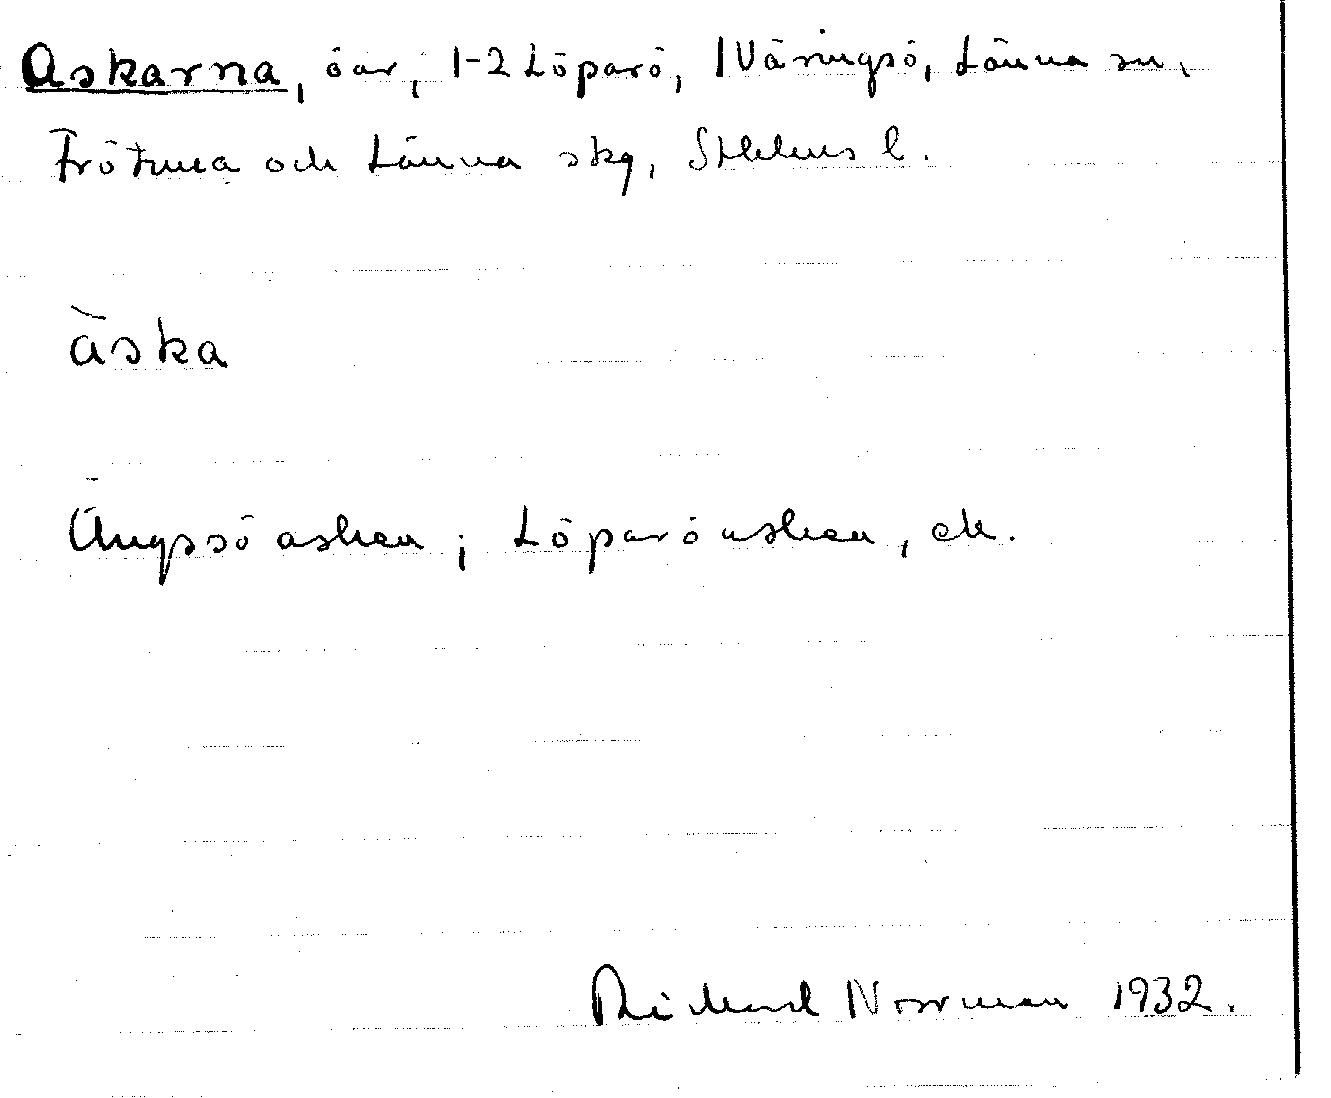 Askarna, öar, 1-2 Löparö, 1 Väringsö, Länna sn,
Frötuna och Länna skg, Sthlms l.
àska
Ängssöaskan; Löparöaskan, etc.
Rickard Norrman 1932.